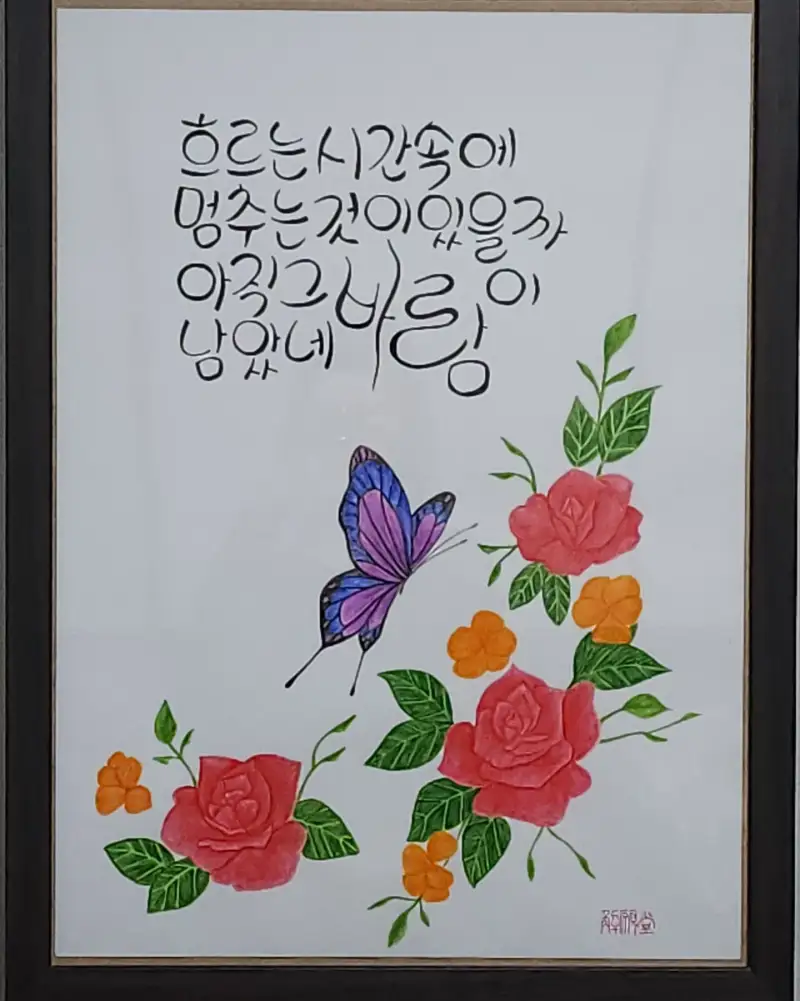 흐르는 시간속에
멈추는 것이 있을까
아직 그 바람이
남았네